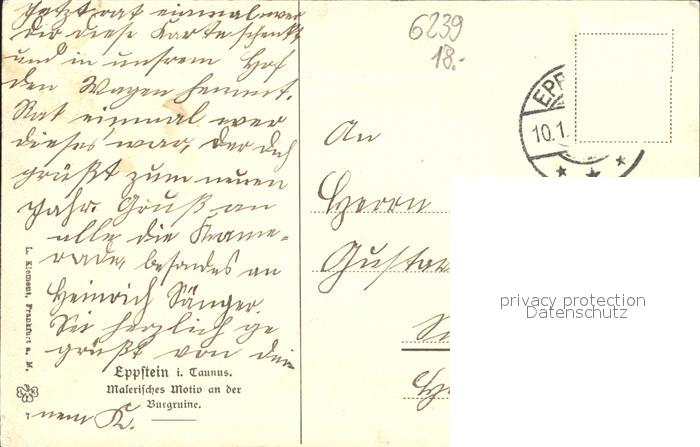 Jetzt rat einmal, wer
dir diese Karte schenkt
und in unsrem Hof
den Wagen hemmt.
Rat einmal wer
dieses war, der dich
grüßt zum neuen
Jahr. Gruß an
alle die Kame-
rade, besondes an
Heinrich Sänger.
Sei herzlich ge
grüßt von dei
nem K.
Eppstein i. Taunus.
Malerisches Motiv an der
Burgruine.
L. Klement, Frankfurt a. M.
6239
18.-
EPP
10.1.
An
Herrn
Gustav
privacy protection
Datenschutz